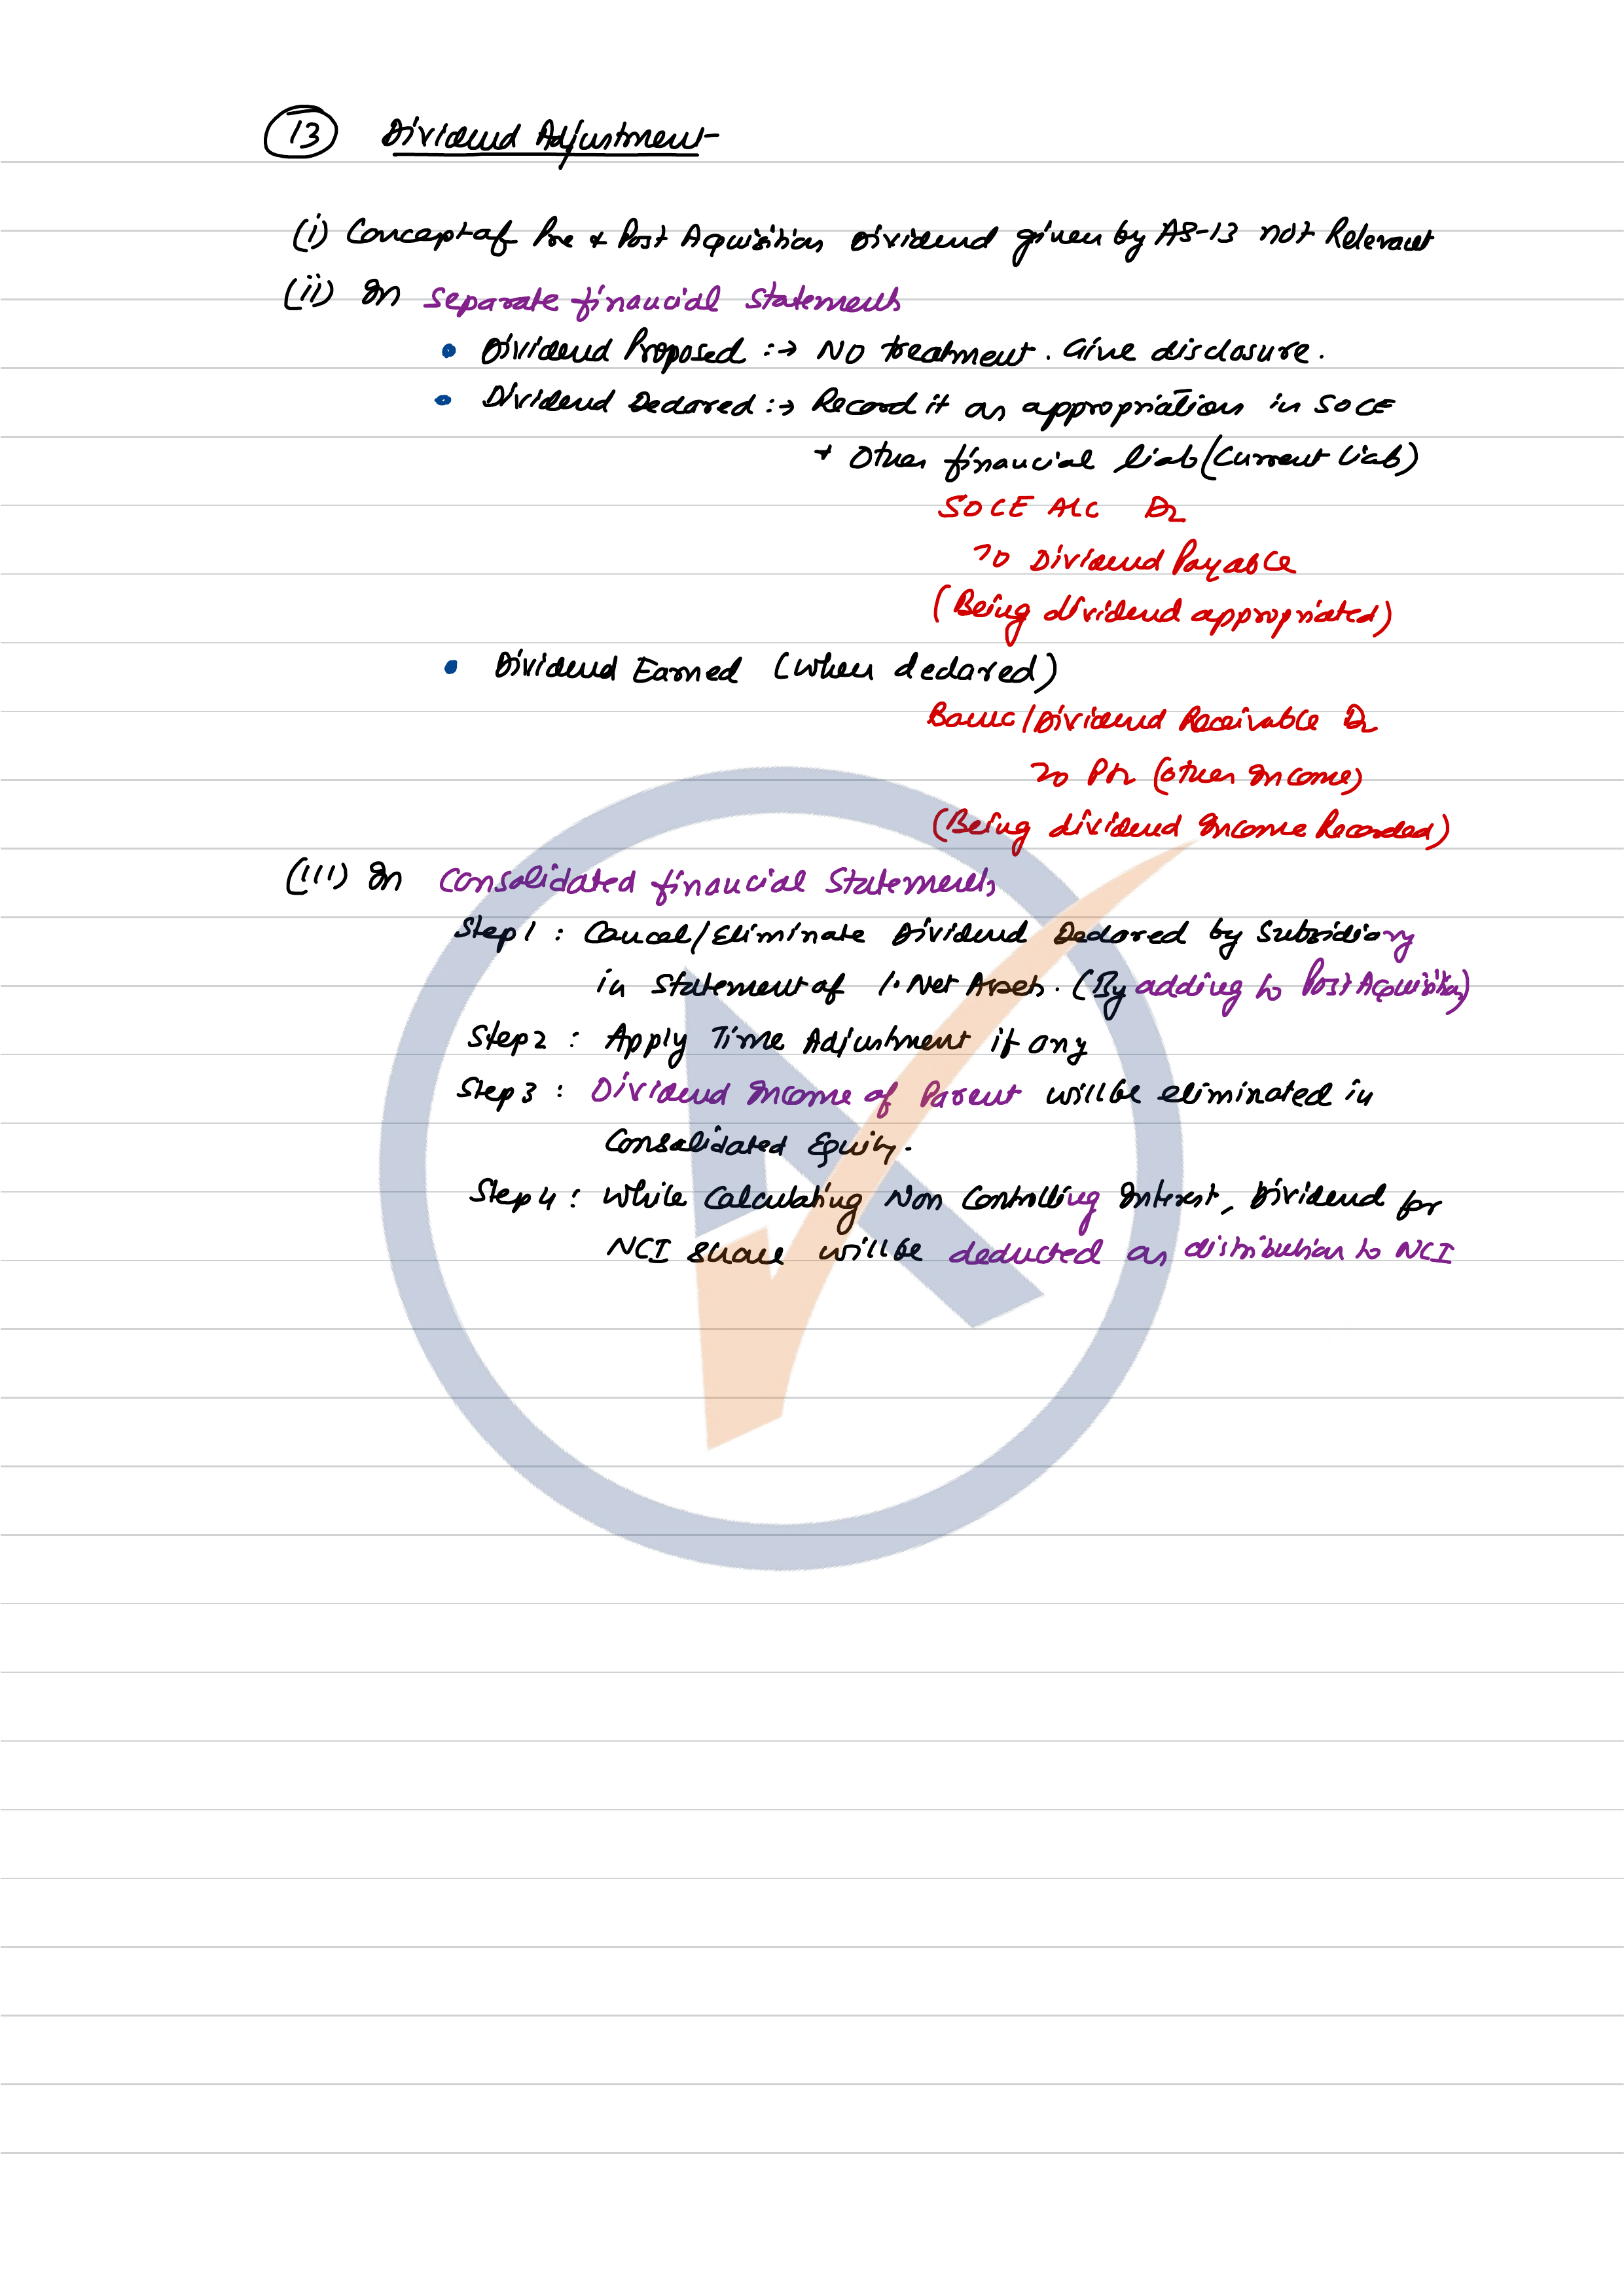 13 Dividend Adjustment
(i) Concept of Pre & Post Acquisition Dividend given by AS-13 not Relevant
(ii) In Separate financial Statements
• Dividend Proposed :→ NO treatment. Give disclosure.
• Dividend Declared :→ Record it as appropriation in SOCE
+ Other financial liab (Current liab)
SOCE A/C Dr
To Dividend Payable
(Being dividend appropriated)
• Dividend Earned (when declared)
Bank/Dividend Receivable Dr
To P/L (other Income)
(Being dividend Income Recorded)
(iii) In Consolidated financial Statements
Step 1 : Cancel/Eliminate Dividend Declared by Subsidiary
in Statement of Net Assets. (By adding to Post Acquisition)
Step 2 : Apply Time Adjustment if any
Step 3 : Dividend Income of Parent will be eliminated in
Consolidated Equity.
Step 4 : While Calculating Non Controlling Interest, Dividend for
NCI share will be deducted as distribution to NCI